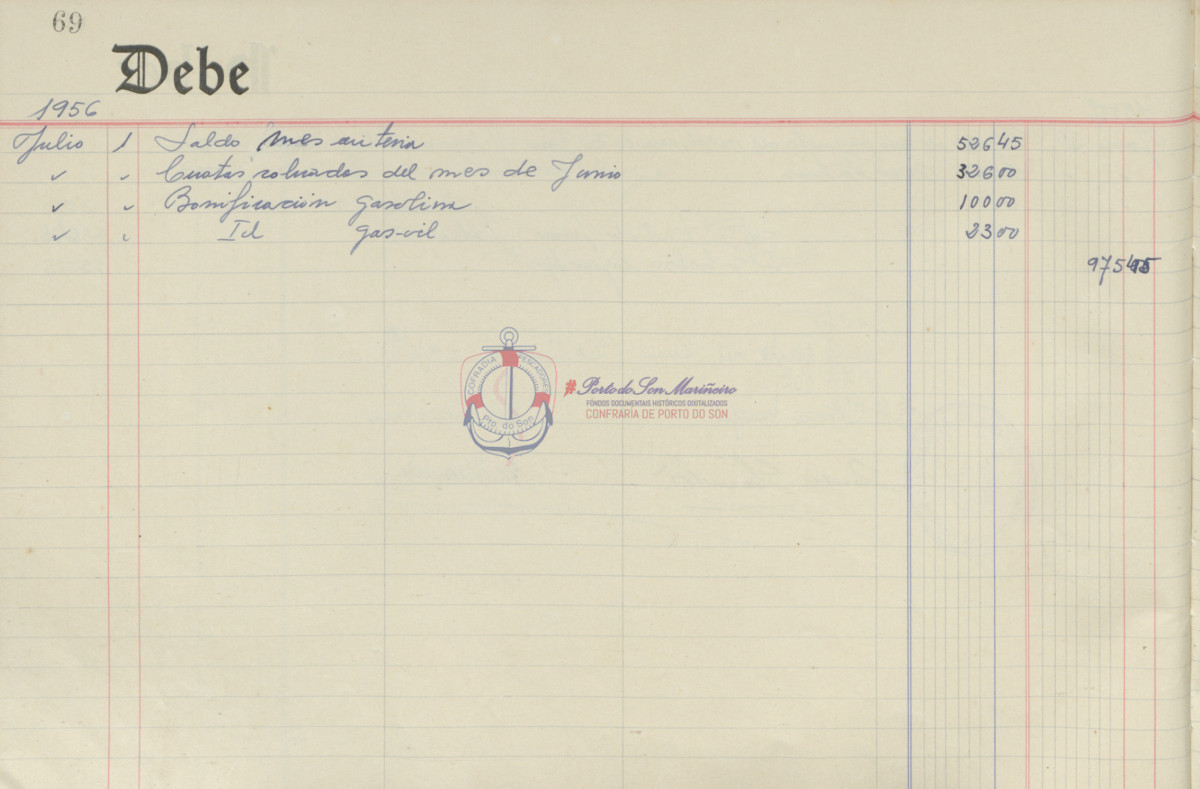 69
Debe
1956
Julio 1 Saldo mes anterior 526 45
✓ ✓ Cuotas cobradas del mes de Junio 326 00
✓ ✓ Bonificación gasolina 100 00
✓ ✓ Id gas-oil 23 00
975 45
COFRADIA PESCADORES
Pto. do Son
#Porto do Son Mariñeiro
FONDOS DOCUMENTAIS HISTÓRICOS DIXITALIZADOS
CONFRARÍA DE PORTO DO SON